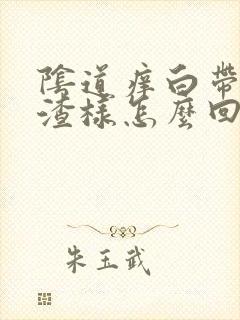 陰道痒白帶
渣樣怎麼回
朱玉武